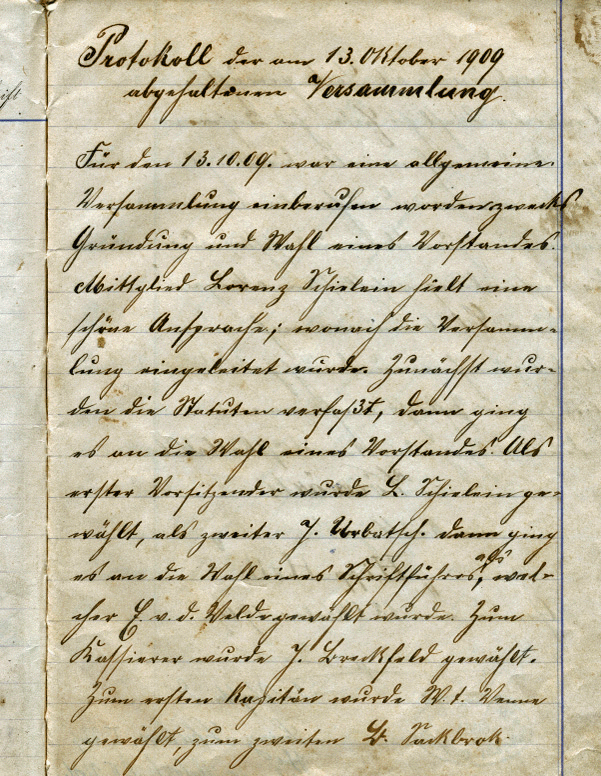 Protokoll der am 13. Oktober 1909
abgehaltenen Versammlung.
Für den 13.10.09. war eine allgemeine
Versammlung einberufen worden zwecks
Gründung und Wahl eines Vorstandes.
Mittglied Lorenz Schielein hielt eine
schöne Ansprache; wonach die Versamm-
lung eingeleitet wurde. Zunächst wur-
den die Statuten verfaßt, dann ging
es an die Wahl eines Vorstandes. Als
erster Vorsitzender wurde L. Schielein ge-
wählt, als zweiter J. Urbatsch. Dann ging
es an die Wahl eines Schriftführers, als wel-
cher E. v. d. Velde gewählt wurde. Zum
Kassierer wurde J. Breckfeld gewählt.
Zum ersten Kapitän wurde W. t. Venne
gewählt, zum zweiten Sackbrok.